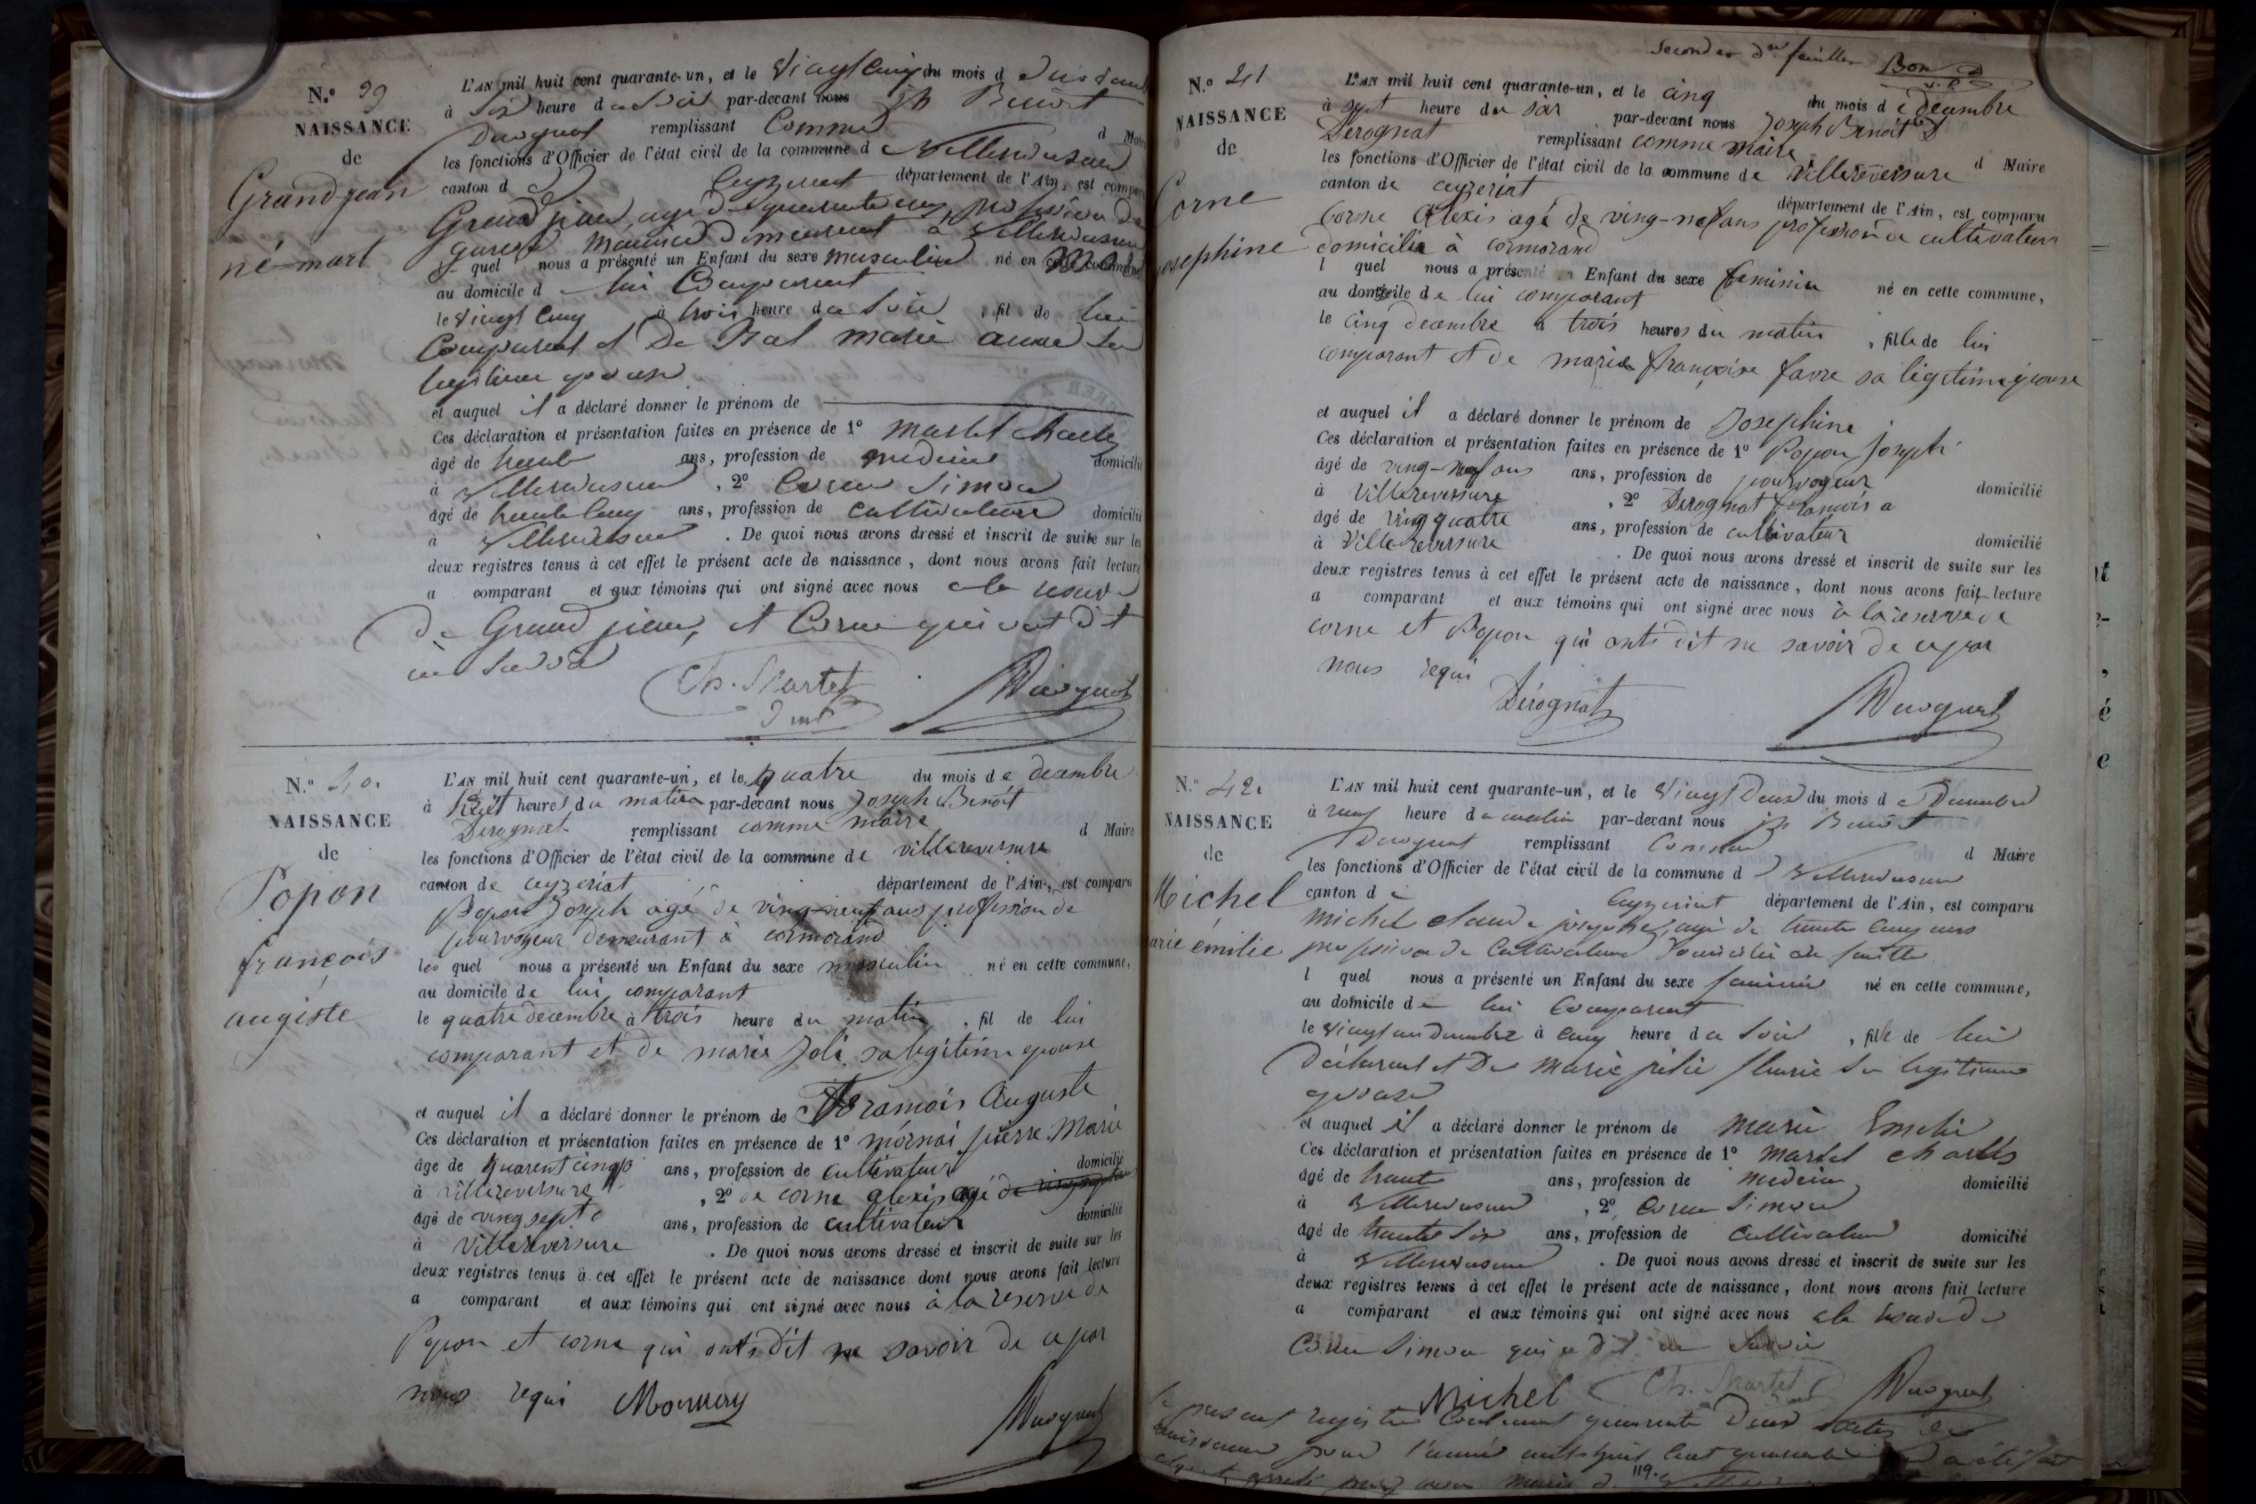 N.° 39
NAISSANCE
de
Grandjean
né-mort
L'AN mil huit cent quarante-un, et le Vingt Cinq du mois d
à Six heure du Soir par-devant nous Jh Benoit
Derognat remplissant Comme d Maire
les fonctions d'Officier de l'état civil de la commune d Villereversure
canton d Ceyzeriat département de l'Ain, est comparu
Grand jean, agé de quarante profession de
demeurant à Villereversure
quel nous a présenté un Enfant du sexe masculin né en cette commune
au domicile de lui Comparant
le Vingt Cinq à trois heure du Soir, fil de lui
Comparant et De marie anne Sa
legitime epouse
et auquel il a déclaré donner le prénom de
Ces déclaration et présentation faites en présence de 1° Martet Charles
âgé de trente ans, profession de medecin domicilié
à Villereversure, 2° Corne Simon
âgé de trente Cinq ans, profession de Cultivateur domicilié
à Villereversure. De quoi nous avons dressé et inscrit de suite sur les
deux registres tenus à cet effet le présent acte de naissance, dont nous avons fait lecture
a comparant et aux témoins qui ont signé avec nous
De Grand jean, et Corne qui ont dit
ne Savoir
Ch. Martet Derognat
N.° 40.
NAISSANCE
de
Popon
françois
augiste
L'AN mil huit cent quarante-un, et le quatre du mois de decambre
à heures du matin par-devant nous Joseph Benoit
Derognat remplissant comme maire d Maire
les fonctions d'Officier de l'état civil de la commune de villereversure
canton de ceyzeriat département de l'Ain, est comparu
Popon Joseph agé de ving-neuf ans profession de
pourvoyeur demeurant à cormorand
les quel nous a présenté un Enfant du sexe masculin né en cette commune,
au domicile de lui comparant
le quatre decembre à trois heure du matin, fil de lui
comparant et de marie Joli sa legitime epouse
et auquel il a déclaré donner le prénom de framois Auguste
Ces déclaration et présentation faites en présence de 1° mornai pierre Marie
âge de quarent cinq ans, profession de cultivateur domicilié
à villereversure, 2° de corne alexis agé de
âgé de ving sept ans, profession de cultivateur domicilié
à Villereversure. De quoi nous avons dressé et inscrit de suite sur les
deux registres tenus à cet effet le présent acte de naissance dont nous avons fait lecture
a comparant et aux témoins qui ont signé avec nous à la reserve de
Popon et corne qui onts dit ne savoir de ce par
nous requi Mornay Derognat
Second et dr feuillet Bon
N.° 41
NAISSANCE
de
Corne
Josephine
L'AN mil huit cent quarante-un, et le cinq du mois de décambre
à sept heure du soir par-devant nous Joseph Benoit
Derognat remplissant comme maire d Maire
les fonctions d'Officier de l'état civil de la commune de Villereversure
canton de ceyzeriat département de l'Ain, est comparu
Corne Alexis agé de ving-nef ans profession de cultivateur
domicilie à cormorand
l quel nous a présenté un Enfant du sexe feminin né en cette commune,
au domicile de lui comparant
le cinq decembre à trois heures du matin, fille de lui
comparant et de marie françoise favre sa légitime épouse
et auquel il a déclaré donner le prénom de Josephine
Ces déclaration et présentation faites en présence de 1° Popon Joseph
âgé de ving-neuf ans ans, profession de pourvoyeur domicilié
à Villereversure, 2° Derognat framois a
âgé de ving quatre ans, profession de cultivateur domicilié
à Villereversure. De quoi nous avons dressé et inscrit de suite sur les
deux registres tenus à cet effet le présent acte de naissance, dont nous avons fait lecture
a comparant et aux témoins qui ont signé avec nous à la reserve de
corne et Popon qui onts dit ne savoir de ce par
nous requi
Dérognat Derognat
N.° 42.
NAISSANCE
de
Michel
marie émilie
L'AN mil huit cent quarante-un, et le Vingt Deux du mois de Decembre
à neuf heure du matin par-devant nous jh Benoit
Derognat remplissant Comme d Maire
les fonctions d'Officier de l'état civil de la commune d Villereversure
canton de Ceyzeriat département de l'Ain, est comparu
michel claude josephe, agé de trente Cinq ans
profession de Cultivateur Domicilié
l quel nous a présenté un Enfant du sexe feminin né en cette commune,
au domicile de lui Comparant
le Vingt un Decembre à cinq heure du Soir, fille de lui
Déclarant et De Marie Sa legitime
epouse
et auquel il a déclaré donner le prénom de Marie Emelie
Ces déclaration et présentation faites en présence de 1° Martet charles
âgé de trente ans, profession de medecin domicilié
à Villereversure, 2° Corne Simon
âgé de trente Six ans, profession de Cultivateur domicilié
à Villereversure. De quoi nous avons dressé et inscrit de suite sur les
deux registres tenus à cet effet le présent acte de naissance, dont nous avons fait lecture
a comparant et aux témoins qui ont signé avec nous a la reserve de
Corne Simon qui a dit ne Savoir
Michel Ch. Martet Derognat
Le present registre Contenant quarante Deux actes de
naissance pour l'année mil huit Cent quarante un a été
119.